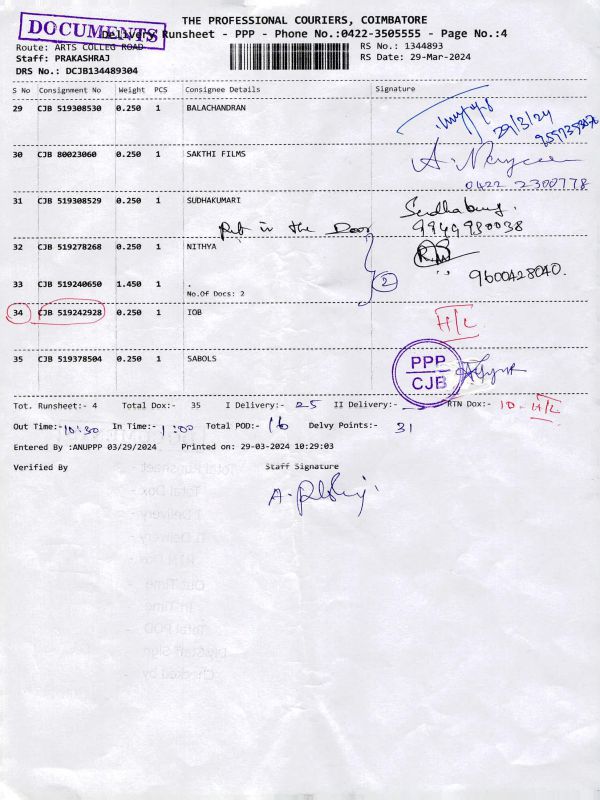 THE PROFESSIONAL COURIERS, COIMBATORE
DOCUMENTS
Delivery Runsheet - PPP - Phone No.:0422-3505555 - Page No.:4
Route: ARTS COLLEG ROAD
RS No.: 1344893
Staff: PRAKASHRAJ
RS Date: 29-Mar-2024
DRS No.: DCJB134489304
S No Consignment No Weight PCS Consignee Details Signature
29 CJB 519308530 0.250 1 BALACHANDRAN
29/3/24
30 CJB 80023060 0.250 1 SAKTHI FILMS
0422 2300778
31 CJB 519308529 0.250 1 SUDHAKUMARI
9944980038
in the Door
32 CJB 519278268 0.250 1 NITHYA
33 CJB 519240650 1.450 1 .
2
9600428040.
No.Of Docs: 2
34 CJB 519242928 0.250 1 IOB
H/L
35 CJB 519378504 0.250 1 SABOLS
PPP
CJB
Tot. Runsheet:- 4 Total Dox:- 35 I Delivery:- 25 II Delivery:- RTN Dox:- 10 - H/L
Out Time:- 10:30 In Time:- 1:00 Total POD:- 16 Delvy Points:- 31
Entered By :ANUPPP 03/29/2024 Printed on: 29-03-2024 10:29:03
Verified By Staff Signature